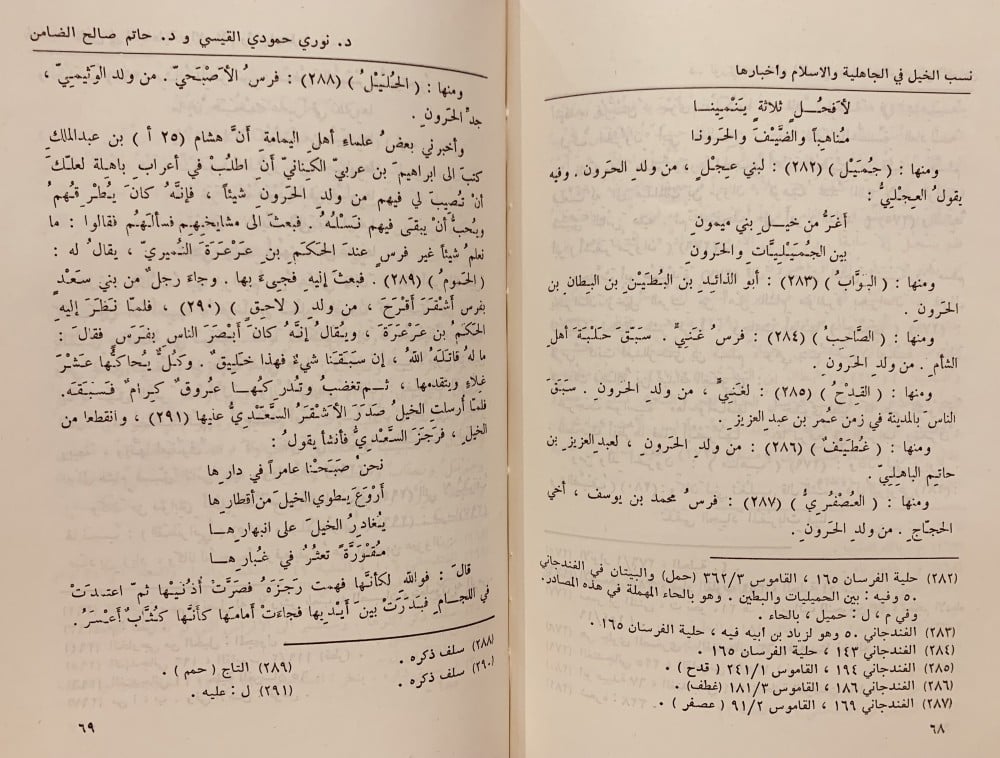 نسب الخيل في الجاهلية والاسلام وأخبارها
لأَفحُــلٍ ثلاثةٍ يَنْميِنــا
مُناهِباً والضَّيْفَ والحَرونا
ومنها : ( جُمَيْل ) (٢٨٢) : لبني عِجْلٍ ، من ولد الحَرون . وفيه
يقولُ العِجْليُّ :
أَغَرُّ من خيــلِ بني ميمون
بين الجُمَيْلِيَّات والحَرونِ
ومنها : ( البَوَّابُ ) (٢٨٣) : أبو الذائِد بن البُطَيْن بن البِطان بن
الحَرون .
ومنها : ( الصَّاحبُ ) (٢٨٤) : فرسُ غَنيٍّ . سَبَقَ حَلْبَةَ أهل
الشأم . من ولد الحَرون .
ومنها : ( القِدْحُ ) (٢٨٥) : لغَنيٍّ ، من ولدِ الحَرونِ . سَبَقَ
الناسَ بالمدينة في زمن عُمر بن عبد العزيز .
ومنها : ( غُطَيْفٌ ) (٢٨٦) : من ولدِ الحَرونِ ، لعبدالعزيز بن
حاتِم الباهليّ .
ومنها : ( العُصْفُريُّ ) (٢٨٧) : فرسُ محمد بن يوسف ، أخي
الحجّاجِ . من ولدِ الحَرونِ .
(٢٨٢) حلية الفرسان ١٦٥ ، القاموس ٣٦٢/٣ (حمل) والبيتان في الغندجاني
٥٠ وفيه : بين الحميليات والبطين . وهو بالحاء المهملة في هذه المصادر .
وفي م ، ل : حميل ، بالحاء .
(٢٨٣) الغندجاني ٥٠ وهو لزياد بن أبيه فيه ، حلية الفرسان ١٦٥ .
(٢٨٤) الغندجاني ١٤٣ ، حلية الفرسان ١٦٥ .
(٢٨٥) الغندجاني ١٩٤ ، القاموس ٢٤١/١ ( قدح ) .
(٢٨٦) الغندجاني ١٨٦ ، القاموس ١٨١/٣ (غطف) .
(٢٨٧) الغندجاني ١٦٩ ، القاموس ٩١/٢ ( عصفر ) .
٦٨
د. نوري حمودي القيسي و د. حاتم صالح الضامن
ومنها : ( الحُلَيْلُ ) (٢٨٨) : فرسُ الأَصْبَحيِّ . من ولد الوَثيميِّ ،
جدّ الحَرون .
وأخبرني بعضُ علماءِ أهلِ اليمامةِ أنَّ هشام (٢٥ أ ) بن عبدالملكِ
كتبَ الى ابراهيمَ بن عربيّ الكِنانيّ أَن اطلُبْ في أعرابِ باهلة لعلّكَ
أنْ تُصيبَ لي فيهم من ولدِ الحَرونِ شيئاً ، فإنَّهُ كانَ يُطْرِقُهُم
ويُحبُّ أنْ يبقى فيهم نَسْلُهُ . فبعثَ الى مشايخِهِم فسأَلَهُم فقالوا : ما
نعلمُ شيئاً غير فرسٍ عندَ الحَكَمِ بنِ عَرْعَرَةَ النُميريِّ ، يقالُ له :
(الحَمومُ) (٢٨٩) . فبعثَ إليهِ فجيءَ بها . وجاءَ رجلٌ من بني سَعْدٍ
بفرس أَشْقَرَ أَقْرَحَ ، من ولدِ ( لاحِقٍ ) (٢٩٠) ، فلمّا نَظَرَ إليهِ
الحَكَمُ بن عَرْعَرةَ ، ويُقالُ إنَّهُ كانَ أَبْصَرَ الناسِ بفَرَسٍ فقالَ :
ما لهُ قاتَلَهُ اللهُ ، إن سَبَقَنا شيءٌ فهذا خَليقٌ . وكُلٌّ يُحاكّها عَشْرَ
غِلاءٍ ويتقدمها ، ثــم تغضبُ وتُدرِكُهــا عُروقٌ كِرامٌ فَتسبقَهُ .
فلمّا أُرسلتِ الخيلُ صَدَرَ الأَشْقَرُ السَّعْديُّ عنها (٢٩١) ، وانقطعا من
الخيلِ ، فرَجَزَ السَّعْديُّ فأنشأَ يقولُ :
نحنُ صَبَحْنا عامراً في دارِها
أَرْوَعَ يَطوي الخيلَ من أَقطارِها
يُغادِرُ الخيلَ على انبهارِهــا
مُقْوَرَّةً تعثُرُ في غُبارِهــا
قالَ : فواللهِ لكأنَّها فهمت رَجَزَهُ فصَرَّتْ أُذُنَيْها ثمّ اعتمدَتْ
في اللجامِ فبَدَرَتْ بينَ أيديها فجاءتْ أمامَها كأنَّها كُثّابٌ أَعْسَرُ .
(٢٨٨) سلف ذكره .
(٢٨٩) التاج ( حمم ) .
(٢٩٠) سلف ذكره .
(٢٩١) ل : عليه .
٦٩